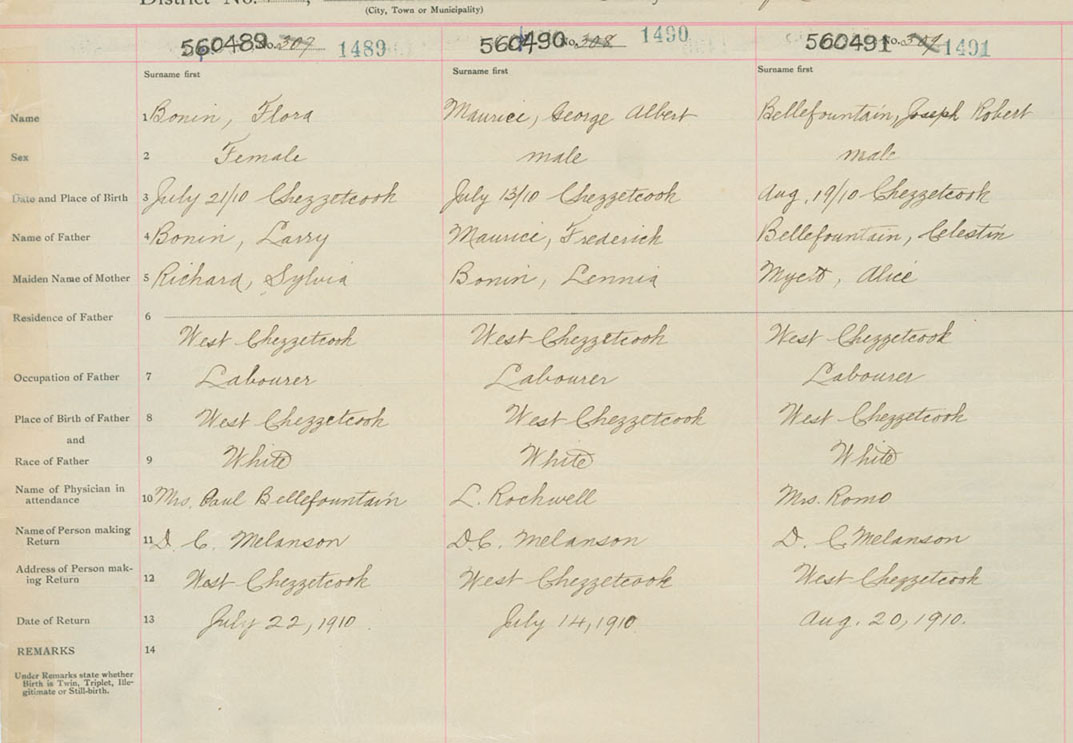 District No.
(City, Town or Municipality)
560489 No. 307 1489 560490 No. 308 1490 560491 No. 1491
Surname first Surname first Surname first
Name 1 Bonin, Flora Maurice, George Albert Bellefountain, Joseph Robert
Sex 2 Female male male
Date and Place of Birth 3 July 21/10 Chezzetcook July 13/10 Chezzetcook Aug. 19/10 Chezzetcook
Name of Father 4 Bonin, Larry Maurice, Frederick Bellefountain, Celestin
Maiden Name of Mother 5 Richard, Sylvia Bonin, Lennia Alice
Residence of Father 6
West Chezzetcook West Chezzetcook West Chezzetcook
Occupation of Father 7 Labourer Labourer Labourer
Place of Birth of Father 8 West Chezzetcook West Chezzetcook West Chezzetcook
and
Race of Father 9 White White White
Name of Physician in
attendance 10 Mrs. Paul Bellefountain L. Rockwell Mrs. Romo
Name of Person making
Return 11 D. C. Melanson D.C. Melanson D. C Melanson
Address of Person mak-
ing Return 12 West Chezzetcook West Chezzetcook West Chezzetcook
Date of Return 13 July 22, 1910. July 14, 1910. Aug. 20, 1910.
REMARKS 14
Under Remarks state whether
Birth is Twin, Triplet, Ille-
gitimate or Still-birth.